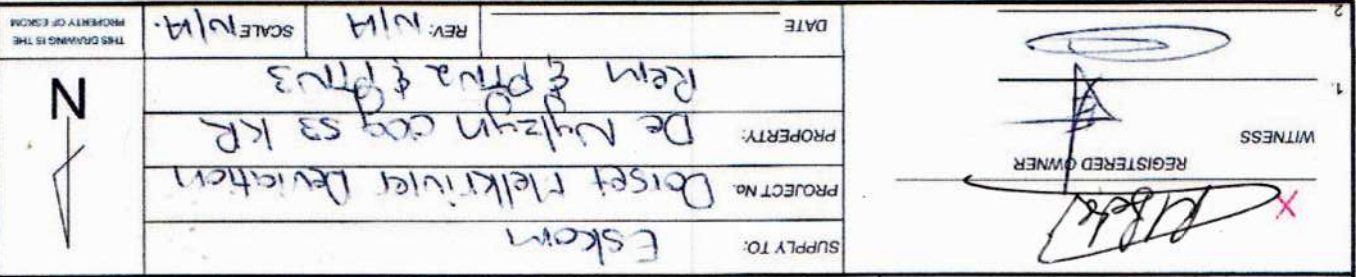 X
REGISTERED OWNER
WITNESS
1.
2.
SUPPLY TO: Eskom
PROJECT No. Dorset Melkrivier Deviation
PROPERTY: De Nylzyn oog 53 KR
Rem & PTN2 & PTN3
DATE
REV: N/A
SCALE N/A.
N
THIS DRAWING IS THE
PROPERTY OF ESKOM